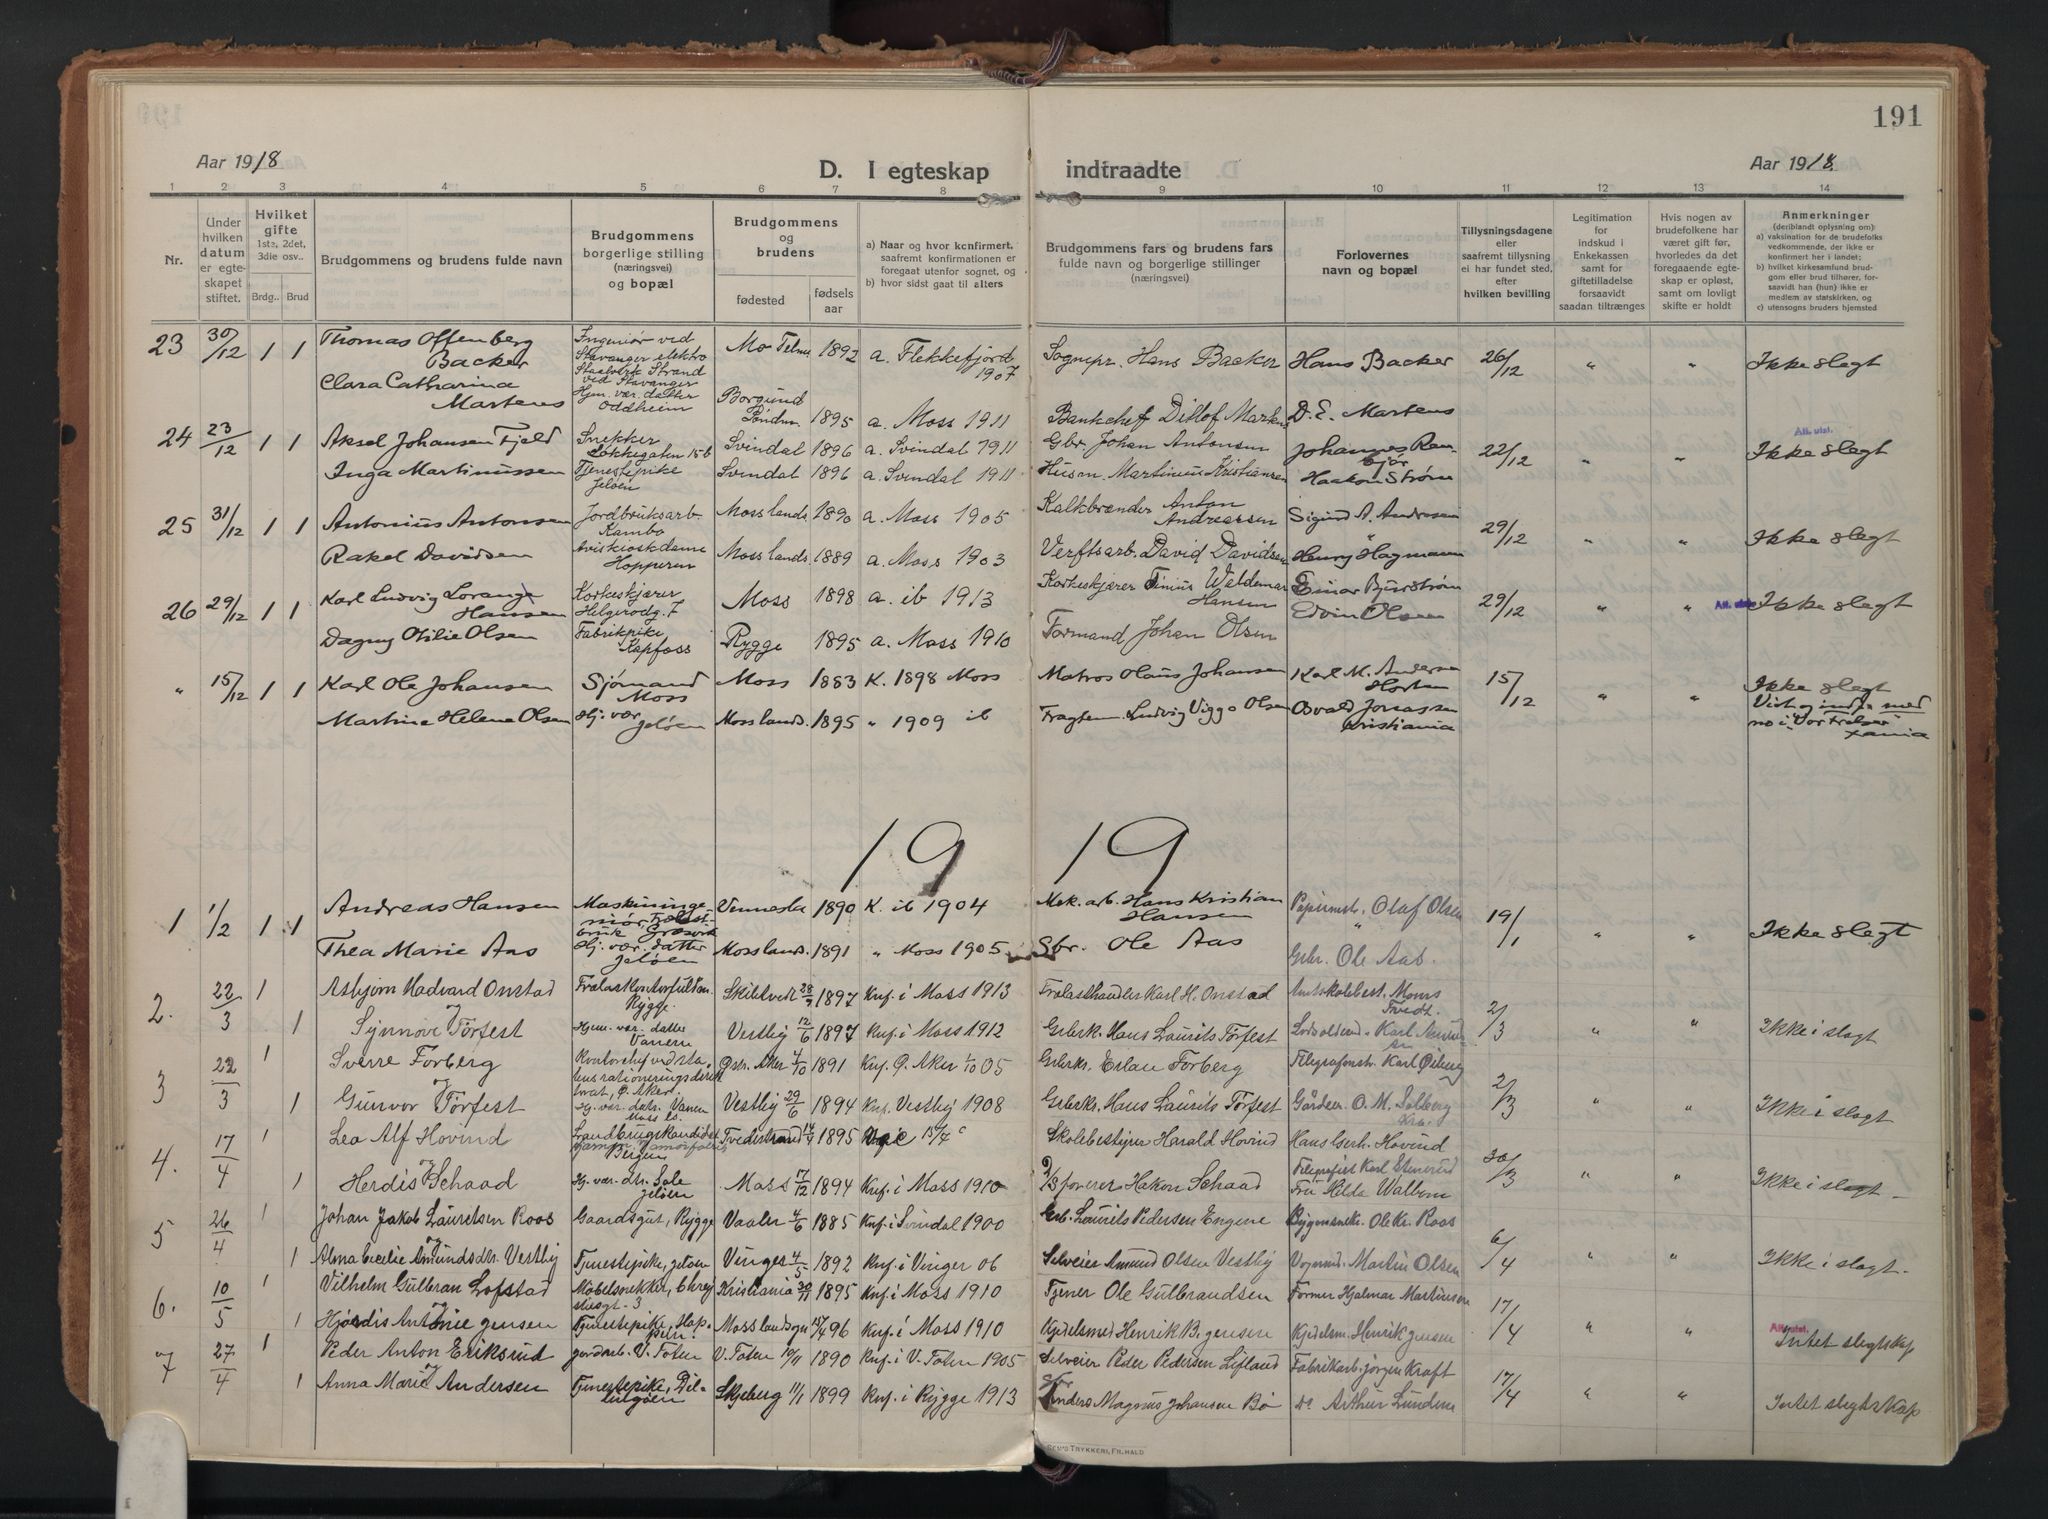 191
Aar 1918
D. I egteskap indtraadte
Aar 1918.
1 2 3 4 5 6 7 8 9 10 11 12 13 14
Nr.
Under hvilken datum er egteskapet stiftet.
Hvilket gifte
1ste, 2det, 3die osv..
Brdg.. Brud
Brudgommens og brudens fulde navn
Brudgommens borgerlige stilling (næringsvei) og bopæl
Brudgommens og brudens
fødested
fødselsaar
a) Naar og hvor konfirmert, saafremt konfirmationen er foregaat utenfor sognet, og
b) hvor sidst gaat til alters
Brudgommens fars og brudens fars fulde navn og borgerlige stillinger (næringsvei)
Forlovernes navn og bopæl
Tillysningsdagene eller saafremt tillysning ei har fundet sted, efter hvilken bevilling
Legitimation for indskud i Enkekassen samt for giftetilladelse forsaavidt saadan tiltrænges
Hvis nogen av brudefolkene har været gift før, hvorledes da det foregaaende egteskap er opløst, samt om lovligt skifte er holdt
Anmerkninger (deriblandt oplysning om):
a) vaksination for de brudefolks vedkommende, der ikke er konfirmert her i landet;
b) hvilket kirkesamfund brudgom eller brud tilhører, forsaavidt han (hun) ikke er medlem av statskirken, og
c) utensogns bruders hjemsted
23 30/12 1 1 Thomas Offenberg Backer Ingeniør ved Stavanger elektro Staalverk Strand ved Stavanger Mo Telm 1892 a. Flekkefjord 1907 Sognepr. Hans Backer Hans Backer 26/12 " " Ikke slegt
Clara Catharina Martens Hjm. vær. datter Oddheim Borgund Søndm 1895 a. Moss 1911 Bankchef Ditlof Martens D. E. Martens
24 23/12 1 1 Aksel Johansen Fjeld Snekker Løkkegaten 15b Svindal 1896 a. Svindal 1911 Gbr. Johan Antonsen Johannes Rambjør 22/12 " " Att. utst. Ikke slegt
Inga Martinussen Tjenestepike Jeløen Svindal 1896 a. Svindal 1911 Husm. Martinius Kristiansen Haakon Strøm
25 31/12 1 1 Antonius Antonsen Jordbruksarb. Kambo Moss lands. 1890 a. Moss 1905 Kalkbrænder Anton Andreassen Sigurd A. Andresen 29/12 " " Ikke slegt
Rakel Davidsen Aviskioskdame Hopperen Moss lands. 1889 a. Moss 1903 Verftsarb. David Davidsen Henry Hagmann
26 29/12 1 1 Karl Ludvig Lorang Hansen Korkeskjærer Helgerødg. 7 Moss 1898 a. ib 1913 Korkeskjærer Tinius Waldemar Hansen Einar Bjurstrøm 29/12 " " Ikke slegt
Dagny Otilie Olsen Fabrikpike Kapfoss Rygge 1895 a. Moss 1910 Formand Johan Olsen Edvin Olsen
" 15/12 1 1 Karl Ole Johansen Sjømand Moss Moss 1883 K. 1898 Moss Matros Olaus Johansen Karl M. Andersen Horten 15/12 " " Ikke slegt
Martine Helene Olsen Hj. vær Jeløen Moss lands. 1895 " 1909 ib Fragtem. Ludvig Viggo Olsen Osvald Jonassen Kristiania Viet og indf. med no i "Vor Frelser"
19 19
1 1/2 1 1 Andreas Hansen Maskiningeniør Vennesla 1890 K. ib 1904 Mek. arb. Hans Kristian Hansen Papirmstr. Olaf Olsen 19/1 " " Ikke slegt
Thea Marie Aas Hj. vær. datter Jeløen Moss lands. 1891 " Moss 1905 Gbr. Ole Aas Gbr. Ole Aas.
2. 22/3 1 Asbjørn Hadvard Onstad Rygge Skibtvedt 28/9 1897 Knf. i Moss 1913 Trælasthandler Karl H. Onstad Amtskolebest. Mons Tvedt. 2/3 " " Ikke i slegt
og 1 Synnøve Torfest Hjem. vær. datter Vanem Vestby 12/6 1897 Knf. i Moss 1912 Grbrk. Hans Laurits Torfest
3 22/3 1 Sverre Forberg Østr. Aker 4/10 1891 Knf. Ø. Aker 1/10 05 Grbrk. Erlan Forberg Telegrafbest. Karl Øiberg 2/3 " " Ikke i slegt
og 1 Gunvor Torfest Hj. vær. datr. Vanem Moss ls. Vestby 29/6 1894 Knf. Vestby 1908 Grbrkr. Hans Laurits Torfest Gårdeier O. M. Solberg Kra.
4. 17/4 1 Lea Alf Hovind Landbrugskandidat Bergen Tvedestrand 14/4 1895 Skolebestyrer Harald Hovind Hans Gerh. Hovind 30/3 " " Ikke i slegt
og 1 Herdis Schaad Hj. vær. dtr. Jeløen Moss 17/12 1894 Knf. i Moss 1910 Hakon Schaad Telegrafist Karl Stensrud Fru Hilda Walbom
5 26/4 1 Johan Jakob Lauritsen Roos Gaardsgut, Rygge Vaaler 4/6 1885 Knf. i Svindal 1900 Grb. Laurits Pedersen Engene Bygmsnek. Ole Kr. Roos 6/4 " " Ikke i slegt.
og 1 Alma Cecilie Amundsdtr. Vestby Tjenestepike, Jeløen Vinger 4/5 1892 Knf. i Vinger 06 Selveier Amund Olsen Vestby Vognmd. Martin Olsen
6. 10/5 1 Vilhelm Gulbran Lofstad Møbelsnekker, Chrystiesgt. 3 Kristiania 30/11 1895 Knf. i Moss 1910 Tjener Ole Gulbrandsen Former Hjalmar Martinsen 17/4 " " Att. utst. Intet slegtskap
og 1 Hjørdis Antonie Jensen Tjenestepike, Moss landsogn 17/4 96 Knf. i Moss 1910 Kjedelsmed Henrik B. Jensen Kjedelsm. Henrik Jensen
7 27/4 1 Peder Anton Eriksrud V. Toten V. Toten 10/11 1890 Knf. i V. Toten 1905 Selveier Peder Pedersen Lifland Fabrikarb. Jørgen Kraft 17/4 " " Intet slegtskap
og 1 Anna Marie Andersen Tjenestepike, Dillingøen Skjeberg 11/1 1899 Knf. i Rygge 1913 Anders Magnus Johansen Bø Do Arthur Lundem
SEM'S TRYKKERI, FR.HALD